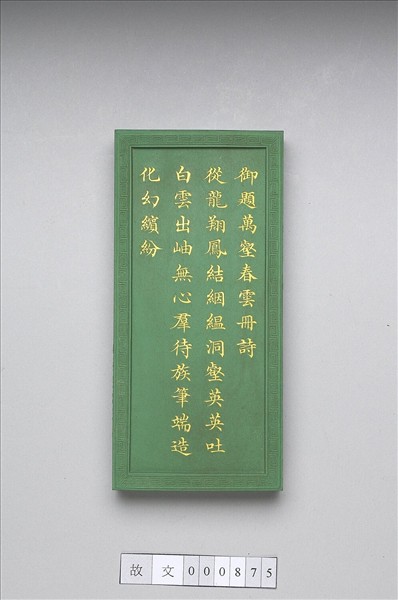 御題萬壑春雲冊詩
從龍翔鳳結絪緼洞壑英英吐
白雲出岫無心羣待族筆端造
化幻繽紛
故文000875